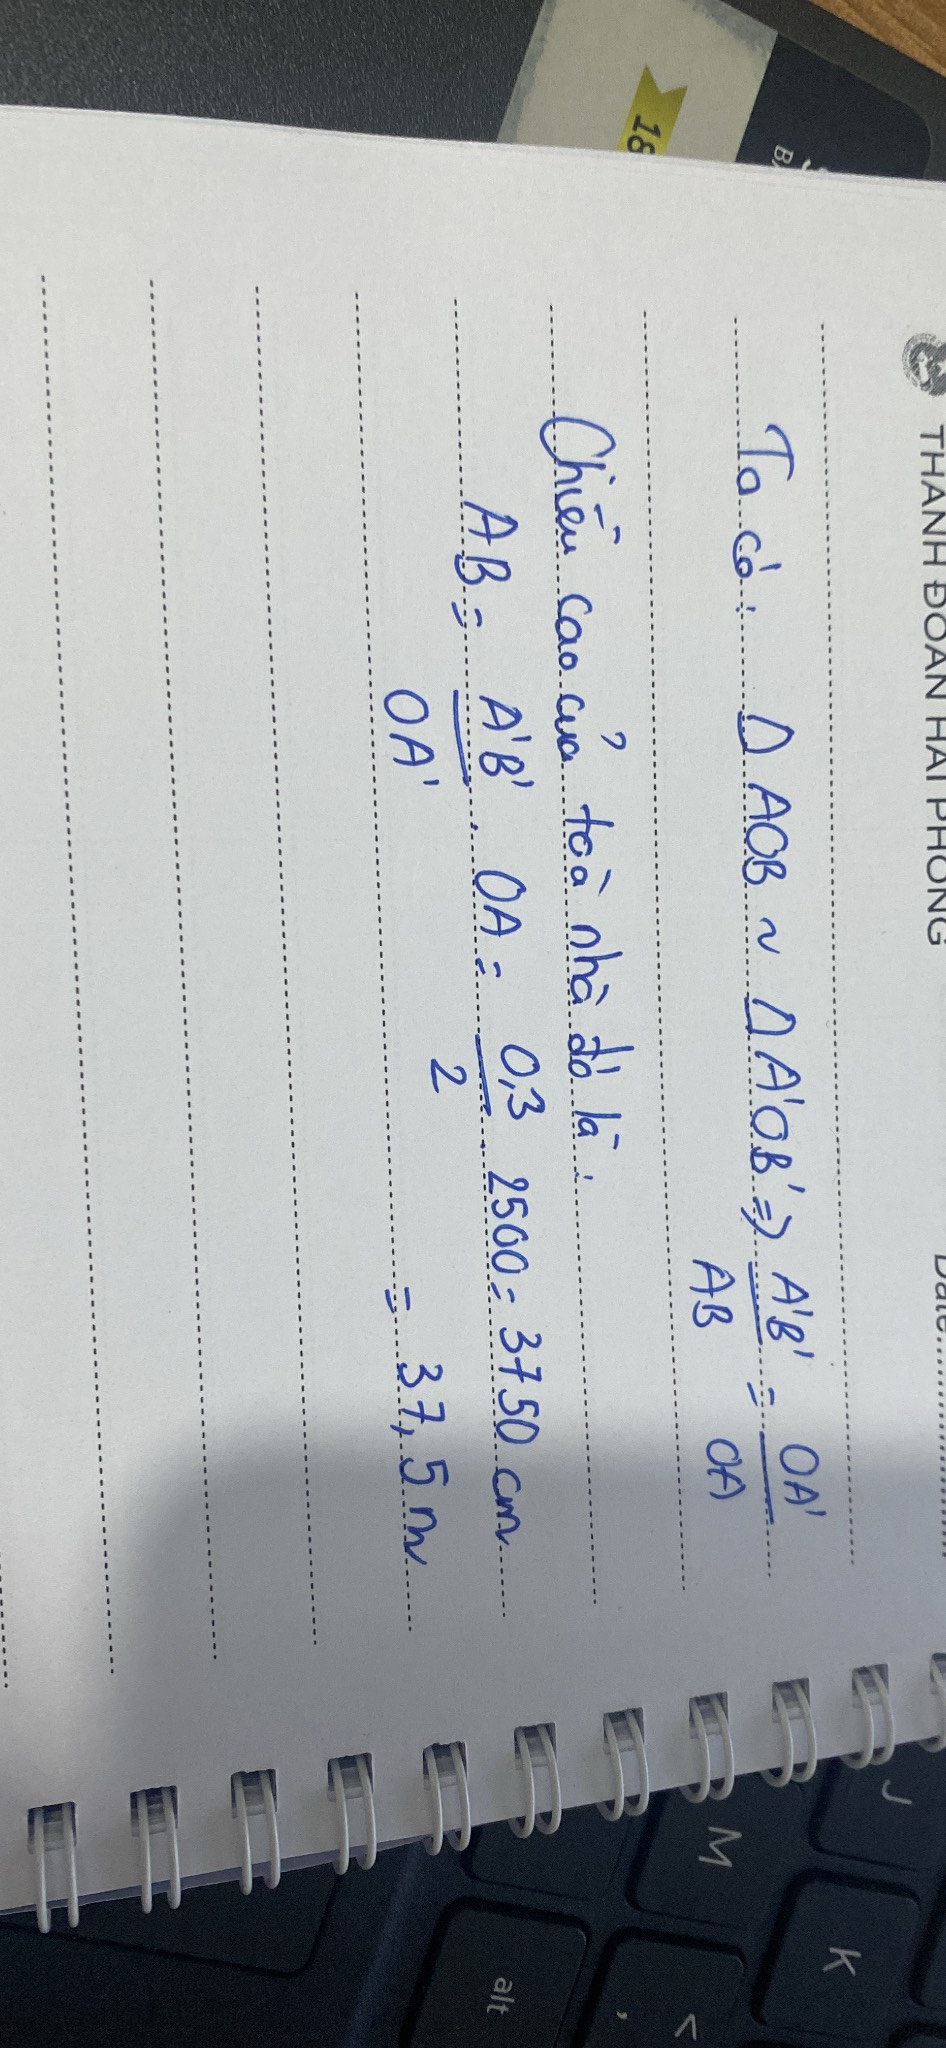 THANH ĐOÀN HẢI PHÒNG
Date:
Ta có: Δ AOB ~ Δ A'OB' => A'B'/AB = OA'/OA
Chiều cao của toà nhà đó là:
AB = A'B'/OA' . OA = 0,3/2 . 2500 = 3750 cm
= 37,5 m
18
J
K
M
<
,
alt